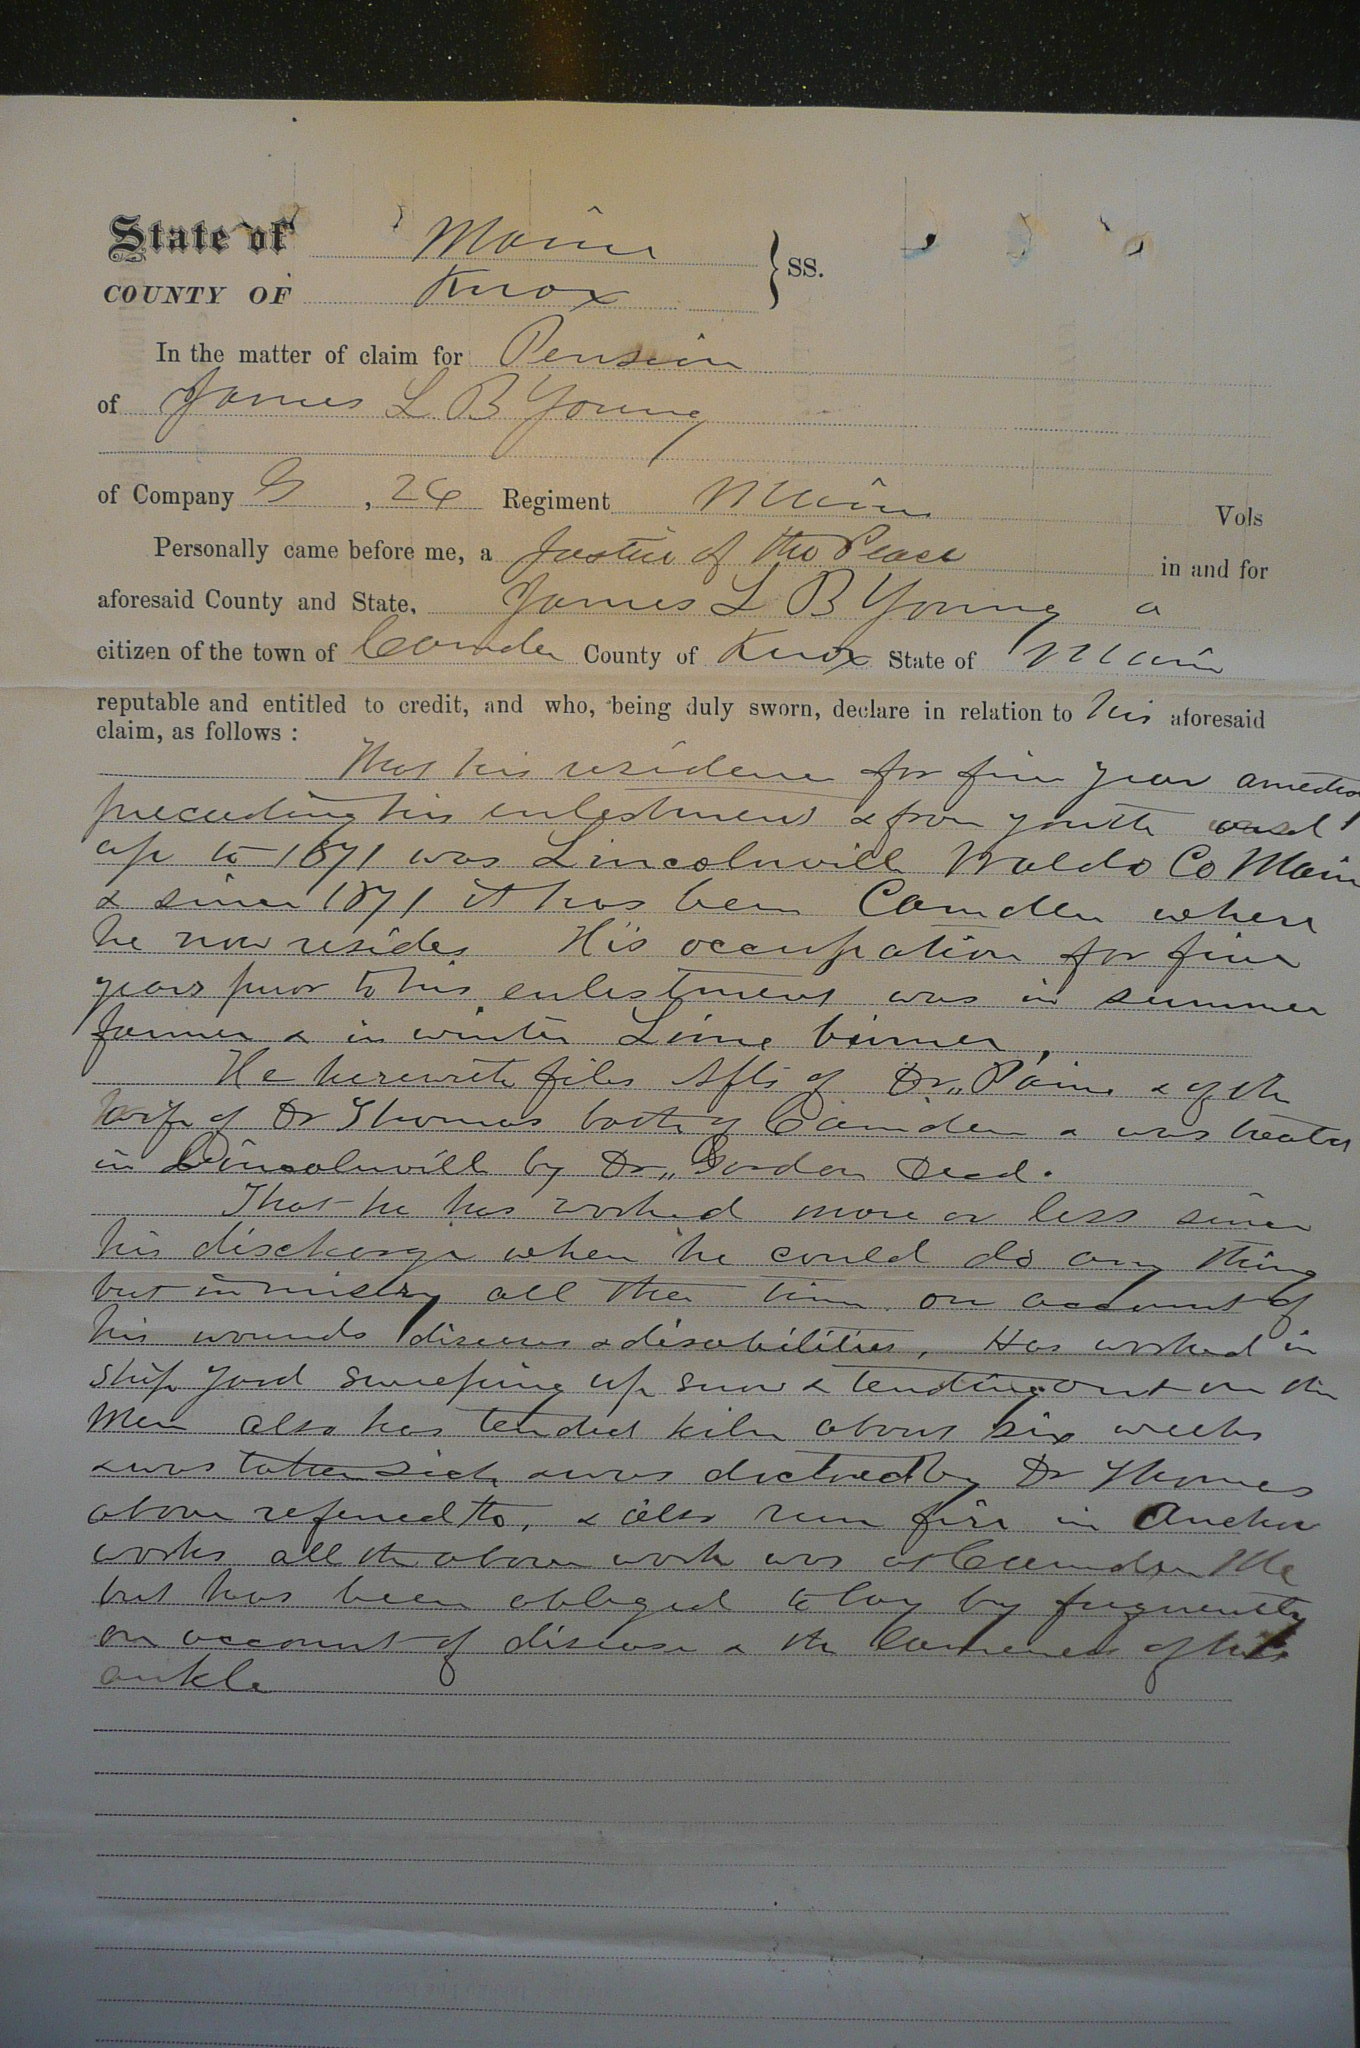 State of Maine
COUNTY OF Knox } SS.
In the matter of claim for Pension
of James L B Young
of Company G, 26 Regiment Maine Vols
Personally came before me, a Justice of the Peace in and for
aforesaid County and State, James L B Young a
citizen of the town of Camden County of Knox State of Maine
reputable and entitled to credit, and who, being duly sworn, declare in relation to his aforesaid
claim, as follows :
That his residence for five years
preceeding his enlistment & from youth
up to 1871 was Lincolnville Waldo Co Maine
& since 1871 it has been Camden where
he now resides His occupation for five
years prior to his enlistment was in summer
farmer & in winter Lime burner,
He herewith files Afts of Dr,, Paine & of the
wife of Dr Thomas both of Camden & was treated
in Lincolnville by Dr,, Gordon Dead.
That he has worked more or less since
his discharge when he could do any thing
but in misery all the time on account of
his wounds disease & disabilities, Has worked in
Ship yard sweeping up snow & tending out on the
Men also has tended kiln about six weeks
& was taken sick & was doctored by Dr Thomas
above refered to, & also run fire in Anchor
works all the above work was at Camden Me
but has been obliged to lay by frequently
on account of disease & the lameness of his
ankle